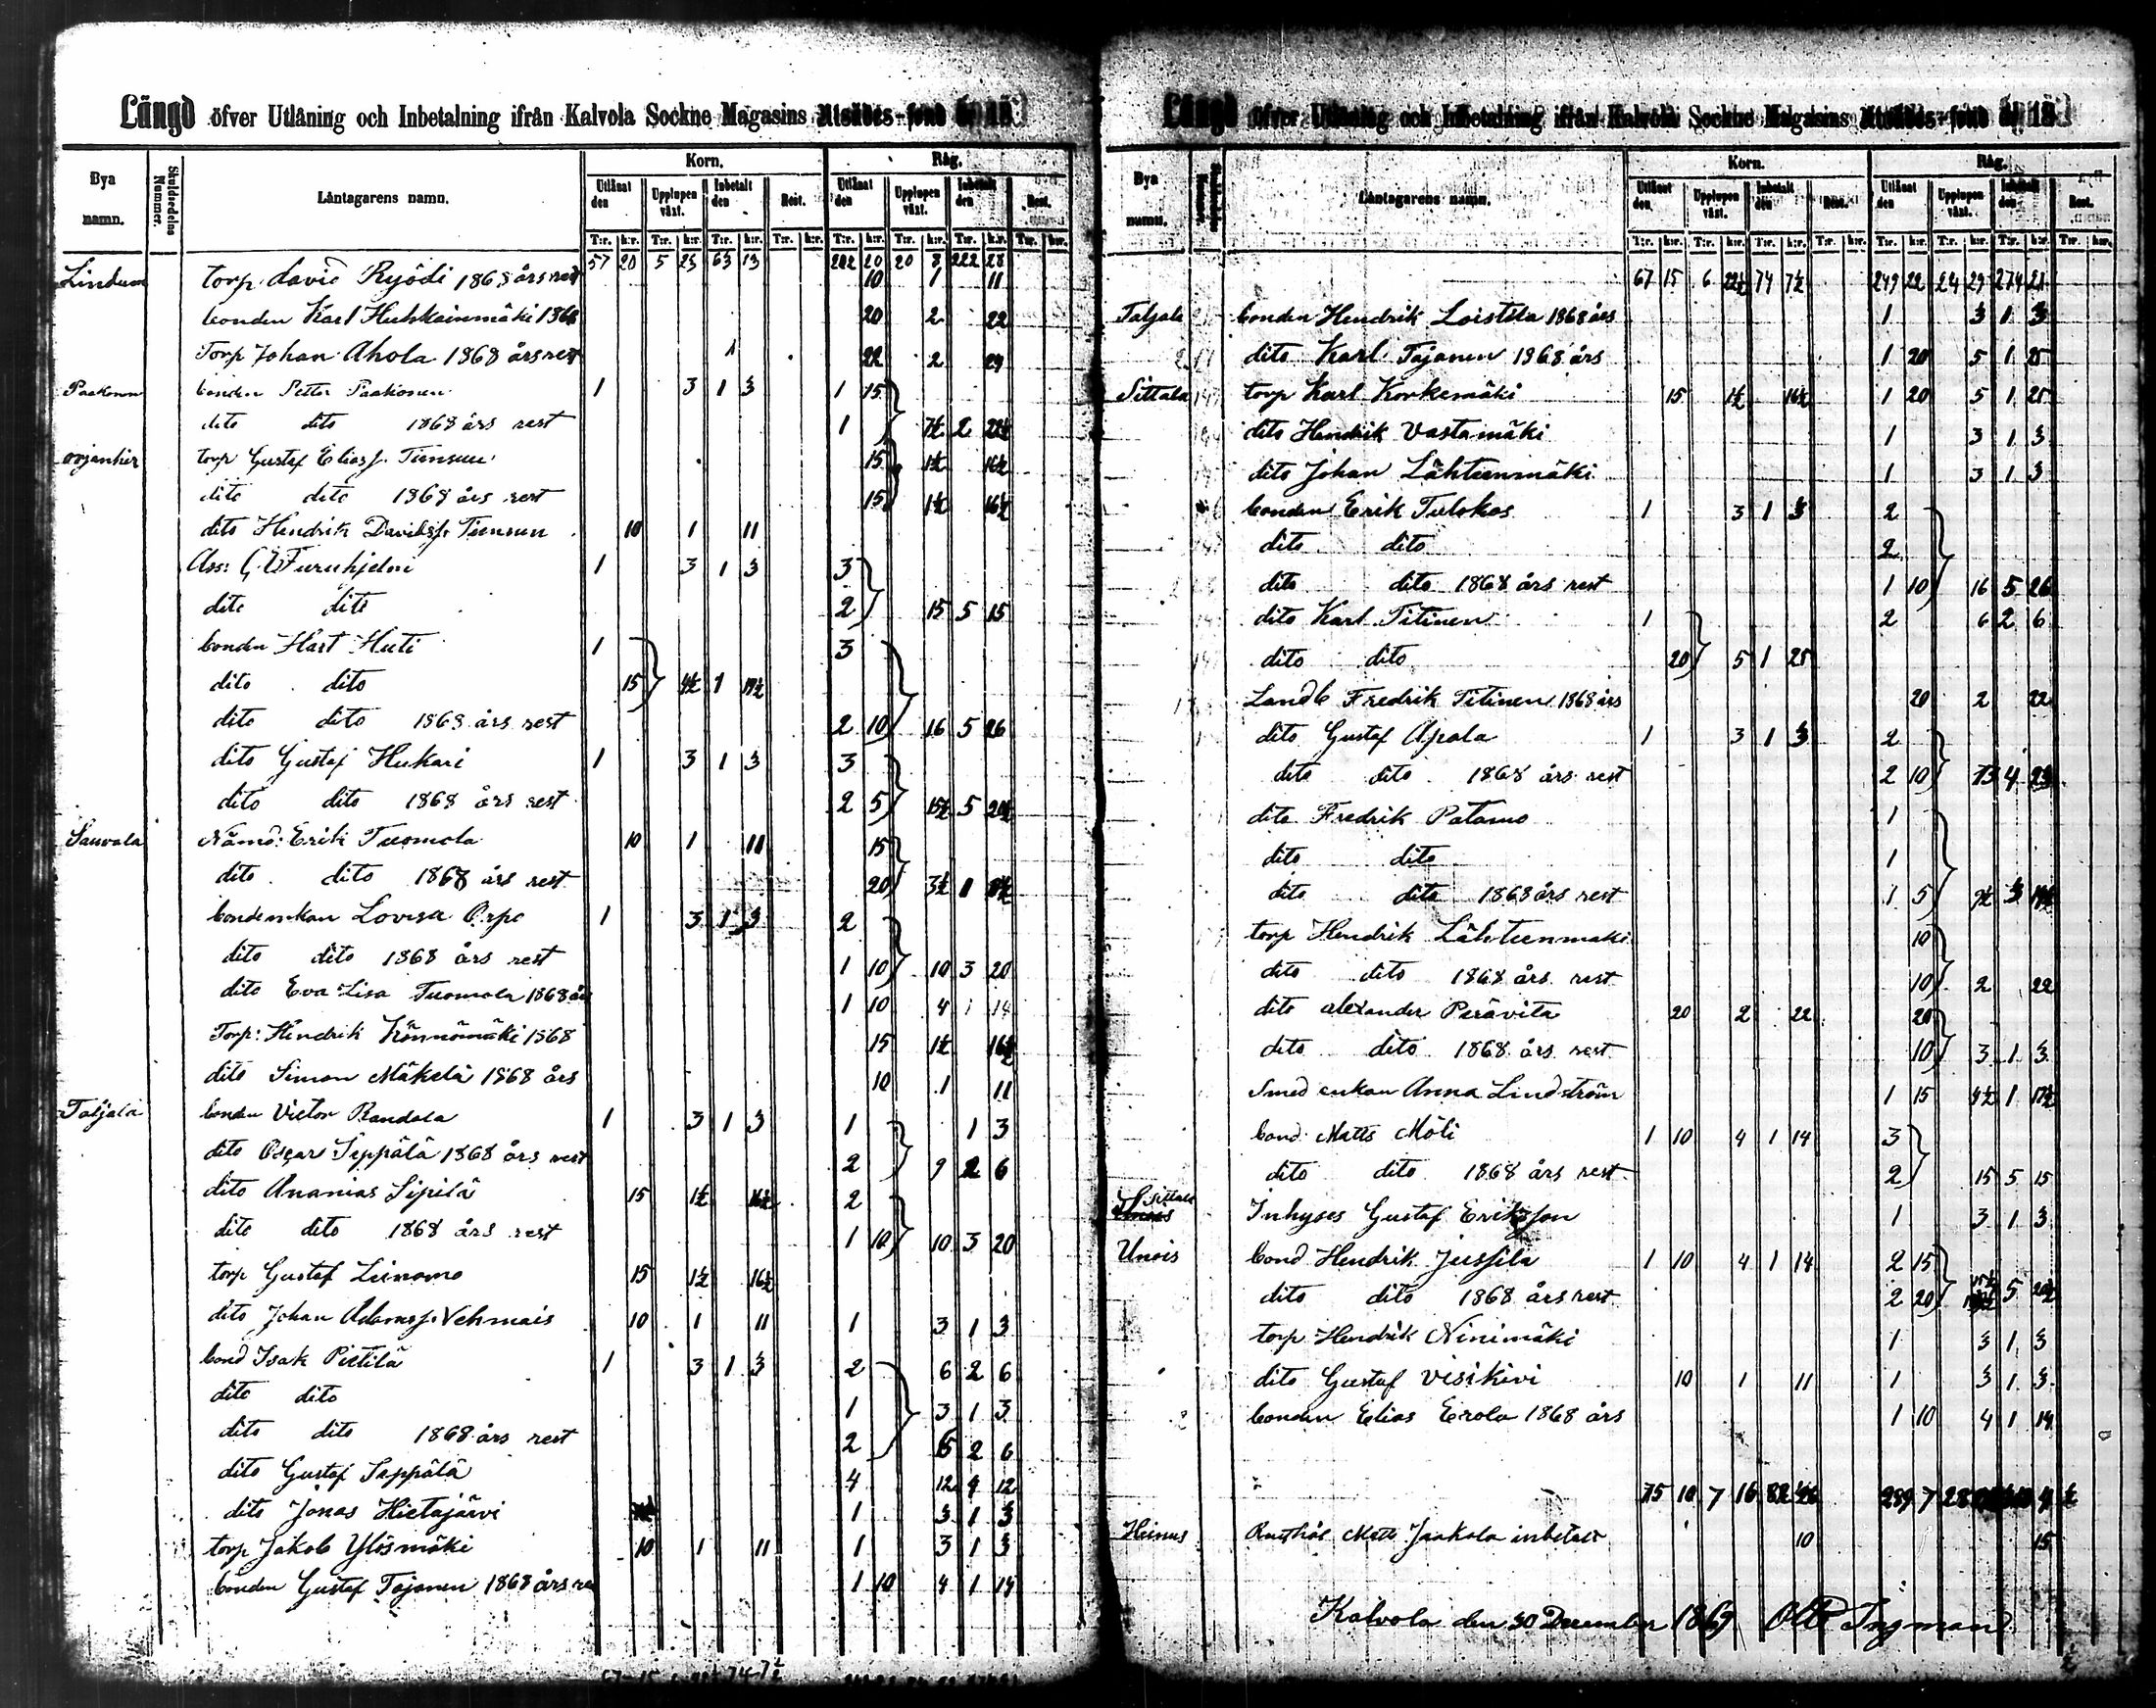 Längd öfver Utlåning och Inbetalning ifrån Kalvola Sockne Magasins Utsädes-fond år 18
Bya namn. Skuldsedelns Nummer. Låntagarens namn. Korn. Råg.
Utlånat den Upplupen växt. Inbetalt den Rest. Utlånat den Upplupen växt. Inbetalt den Rest.
T:r. k:r. T:r. k:r. T:r. k:r. T:r. k:r. T:r. k:r. T:r. k:r. T:r. k:r. T:r. k:r.
57 20 5 23 63 13 202 20 20 8 222 28
torp. david Ryödi 1868 års rest 10 1 11
bonden Karl Huhkainmäki 1868 20 2 22
Torp Johan Ahola 1868 års rest 22 2 24
bonden Petter Paakonen 1 3 1 3 1 15
dito dito 1868 års rest 1 7½ 2 22½
torp Gustaf Eliasf. Tunsuu 15 1½ 16½
dito dito 1868 års rest 15 1½ 16½
dito Hendrik Davidsf. Tunsun 10 1 11
Ass: G. Furuhjelm 1 3 1 3 3
dito dito 2 15 5 15
bonden Hart Huti 1 3
dito dito 15 4½ 1 19½
dito dito 1868 års rest 2 10 16 5 26
dito Gustaf Hukari 1 3 1 3 3
dito dito 1868 års rest 2 5 15½ 5 20½
Sauvala Nämd: Erik Tuomola 10 1 11 15
dito dito 1868 års rest 20 3½ 1 8½
bondenkan Lovisa Orpo 1 3 1 3 2
dito dito 1868 års rest 1 10 10 3 20
dito Eva Lisa Tuomola 1868 års 1 10 4 1 14
Torp: Hendrik Könnömäki 1868 15 1½ 16½
dito Simon Mäkelä 1868 års 10 1 11
Taljala bonden Victor Randala 1 3 1 3 1 1 3
dito Oscar Seppälä 1868 års rest 2 9 2 6
dito Ananias Sipilä 15 1½ 16½ 2
dito dito 1868 års rest 1 10 10 3 20
torp Gustaf Liinamo 15 1½ 16½
dito Johan Adamsf. Vehmais 10 1 11 1 3 1 3
bond Isak Pietilä 1 3 1 3 2 6 2 6
dito dito 1 3 1 3
dito dito 1868 års rest 2 6 2 6
dito Gustaf Seppälä 4 12 4 12
dito Jonas Hietajärvi 1 3 1 3
torp Jakob Ylösmäki 10 1 11 1 3 1 3
bonden Gustaf Tajanen 1868 års re 1 10 4 1 14
Längd öfver Utlåning och Inbetalning ifrån Kalvola Sockne Magasins Utsädes-fond år 18
Bya namn. Låntagarens namn. Korn. Råg.
Utlånat den Upplupen växt. Inbetalt den Rest. Utlånat den Upplupen växt. Inbetalt den Rest.
T:r. k:r. T:r. k:r. T:r. k:r. T:r. k:r. T:r. k:r. T:r. k:r. T:r. k:r. T:r. k:r.
67 15 6 22½ 74 7½ 249 22 24 29 274 21
Taljala bonden Hendrik Loistila 1868 års 1 3 1 3
dito Karl Tajanen 1868 års 1 20 5 1 25
Sittala torp Karl Korkemäki 15 1½ 16½ 1 20 5 1 25
dito Hendrik Vastamäki 1 3 1 3
dito Johan Lähteenmäki 1 3 1 3
bonden Erik Tulokas 1 3 1 3 2
dito dito 2
dito dito 1868 års rest 1 10 16 5 26
dito Karl Titinen 1 2 6 2 6
dito dito 20 5 1 25
Landb Fredrik Titinen 1868 års 20 2 22
dito Gustaf Apala 1 3 1 3 2
dito dito 1868 års rest 2 10 13 4 23
dito Fredrik Patamo 1
dito dito 1
dito dito 1868 års rest 1 5 9½ 3 14½
torp Hendrik Lähteenmaki 10
dito dito 1868 års rest 10 2 22
dito alexander Perävita 20 2 22 20
dito dito 1868 års rest 10 3 1 3
Smed enkan Anna Lindström 1 15 4½ 1 19½
bond Matts Möli 1 10 4 1 14 3
dito dito 1868 års rest 2 15 5 15
Sittala Inhyses Gustaf Eriksson 1 3 1 3
Unois bond Hendrik Jussila 1 10 4 1 14 2 15
dito dito 1868 års rest 2 20 15½ 5 20½
torp Hendrik Ninimäki 1 3 1 3
dito Gustaf Visikivi 10 1 11 1 3 1 3
bonden Elias Erola 1868 års 1 10 4 1 14
75 10 7 16 82 26 289 7 28
Heinus Rusthål Matts Jaakola inbetalt 10 15
Kalvola den 30 December 1869 Otto Ingman